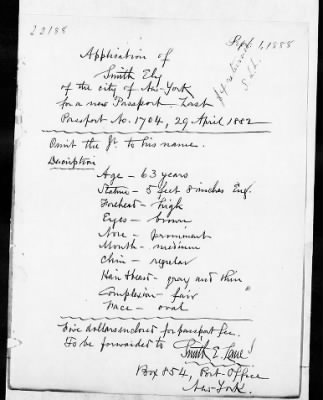 22188
Sept. 1, 1888
Application of
Smith Ely
of the city of New-York
for a new Passport. Last
Passport No. 1704, 29 April 1882
Omit the Jr. to his name.
Description
Age - 63 years
Stature - 5 feet 8 inches Eng.
Forehead - high
Eyes - brown
Nose - prominent
Mouth - medium
Chin - regular
Hair & Beard - gray and thin
Complexion - fair
Face - oval
Five dollars enclosed for passport fee.
To be forwarded to Smith E. Lane
Box 854, Post Office
New-York.